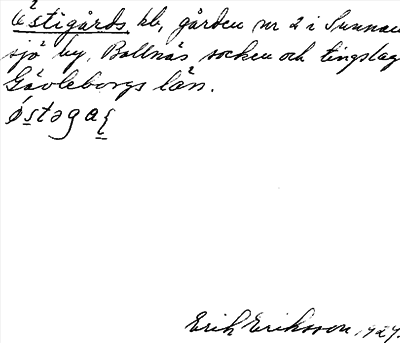 Östigårds hb, gården nr 2 i Sunnan
sjö by, Bollnäs socken och tingslag
Gävleborgs län.
östəga
Erik Eriksson, 1927.